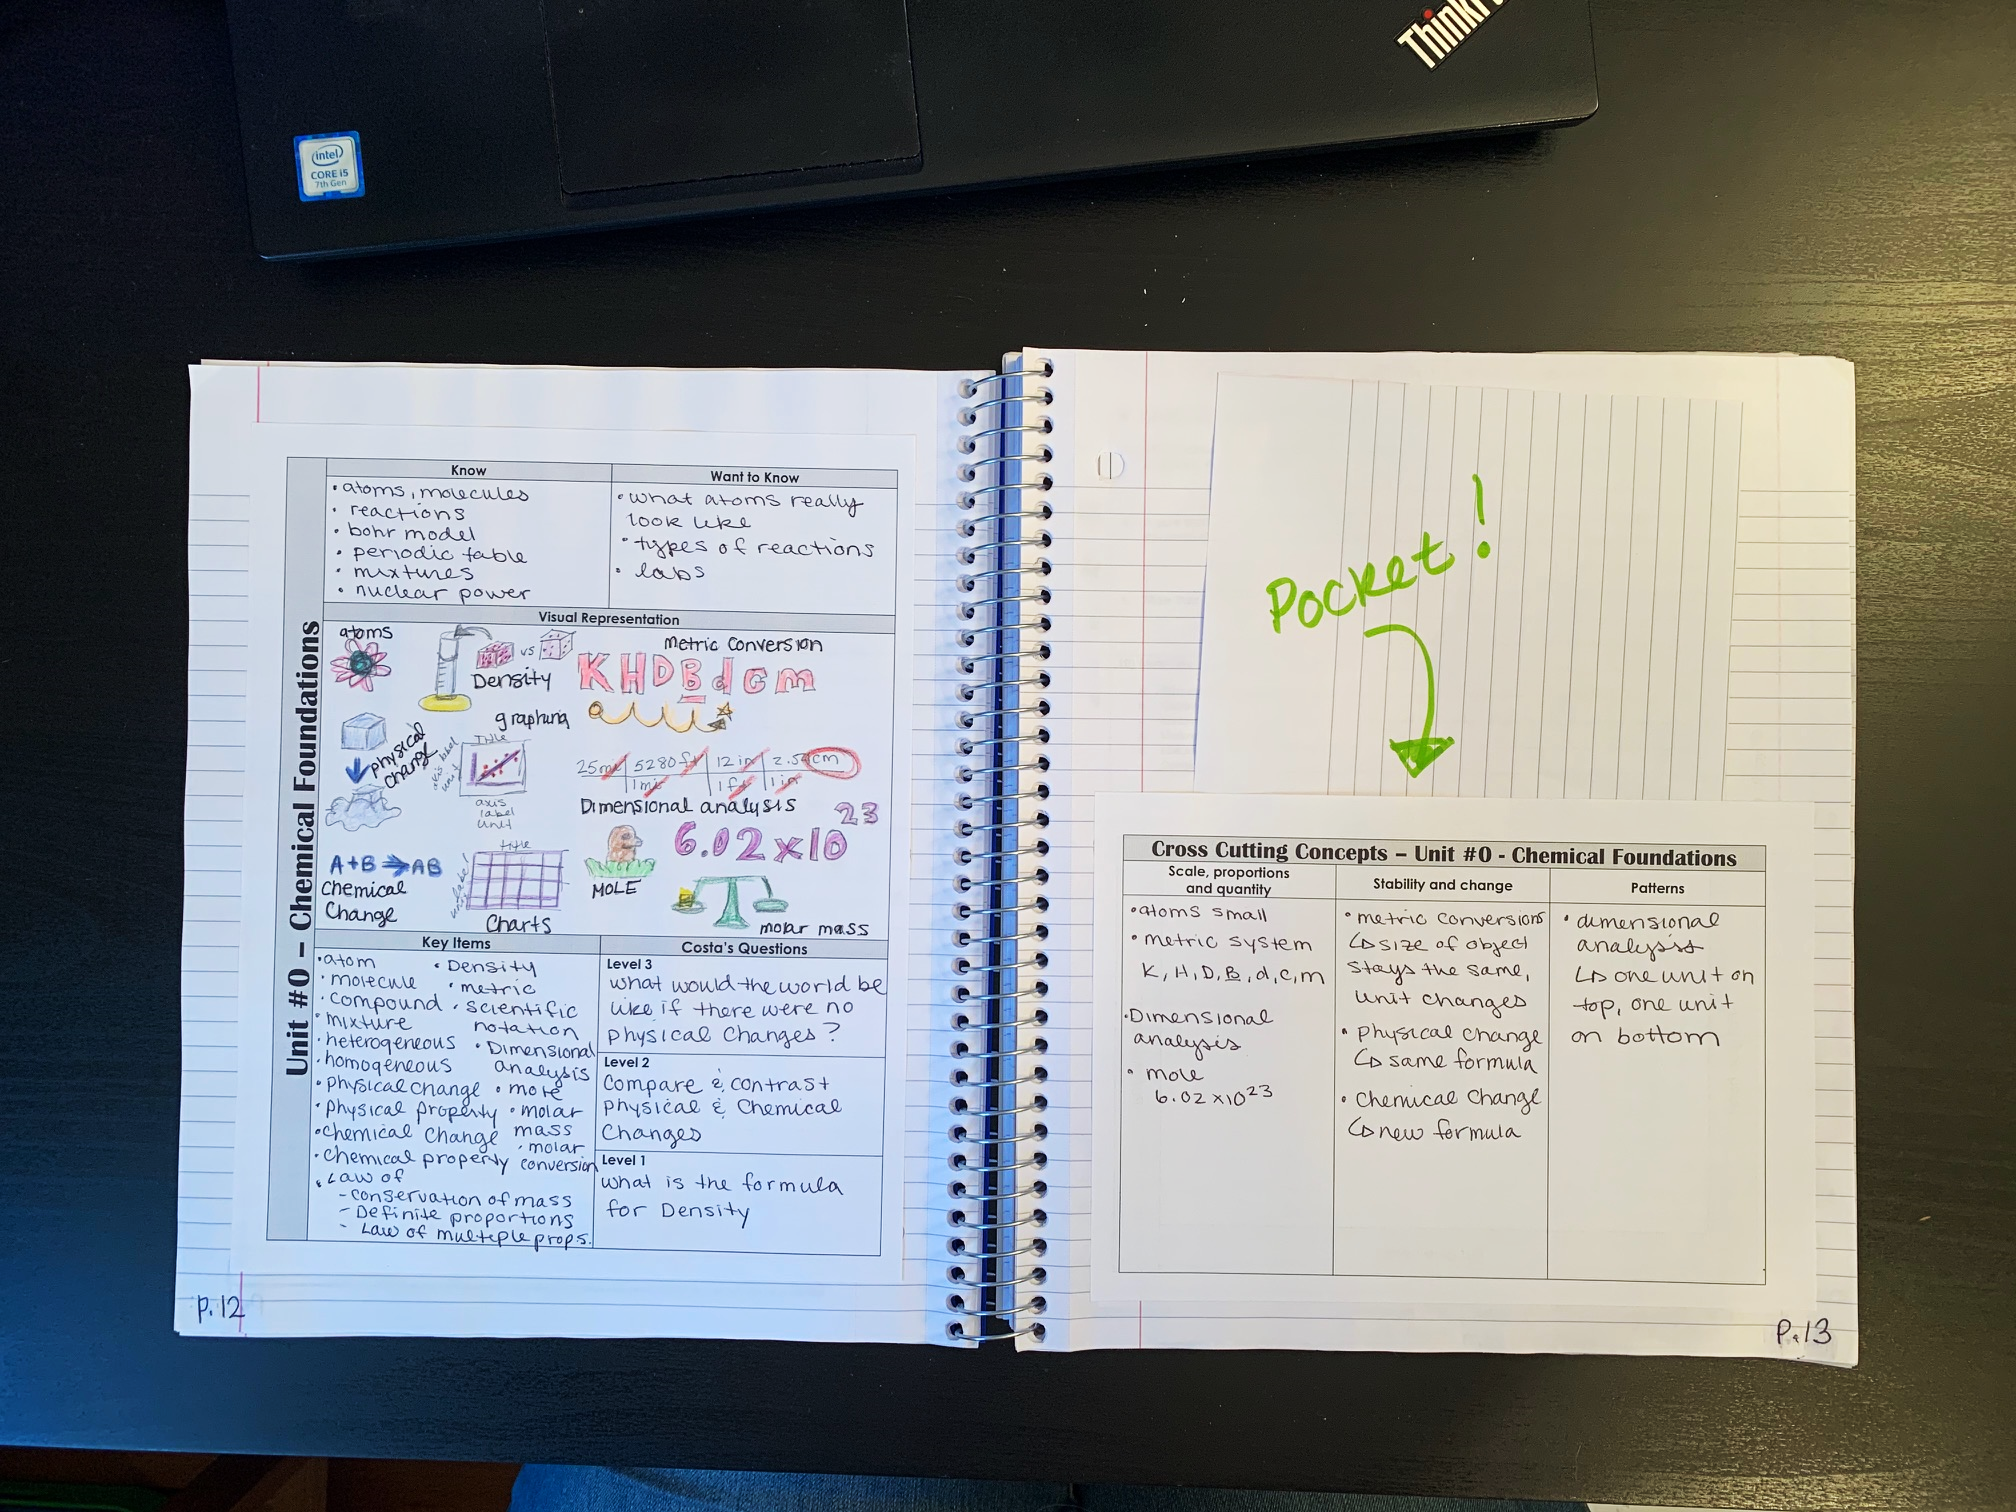 ThinkP
intel
CORE i5
7th Gen
Unit #0 – Chemical Foundations
Know
• atoms, molecules
• reactions
• bohr model
• periodic table
• mixtures
• nuclear power
Want to Know
• what atoms really
look like
• types of reactions
• labs
Visual Representation
atoms
vs
Density
metric conversion
K H D B d c m
physical
change
graphing
Title
axis label
unit
axis
label
unit
25mi 5280ft 12 in 2.54cm
1mi 1ft 1in
Dimensional analysis
A+B → AB
Chemical
Change
title
Charts
MOLE
6.02 x 10 23
molar mass
Key Items
• atom
• molecule
• compound
• mixture
• heterogeneous
• homogeneous
• physical change
• physical property
• chemical change
• chemical property
• Law of
- conservation of mass
- Definite proportions
- Law of multiple props.
• Density
• metric
• scientific
notation
• Dimensional
analysis
• mole
• molar
mass
• molar
conversion
Costa's Questions
Level 3
what would the world be
like if there were no
physical changes?
Level 2
Compare & contrast
Physical & Chemical
Changes
Level 1
what is the formula
for Density
P. 12
Pocket!
Cross Cutting Concepts – Unit #0 - Chemical Foundations
Scale, proportions
and quantity
• atoms small
• metric system
K, H, D, B, d, c, m
• Dimensional
analysis
• mole
6.02 x 10 23
Stability and change
• metric conversions
↳ size of object
stays the same,
unit changes
• Physical change
↳ same formula
• Chemical Change
↳ new formula
Patterns
• dimensional
analysis
↳ one unit on
top, one unit
on bottom
P. 13